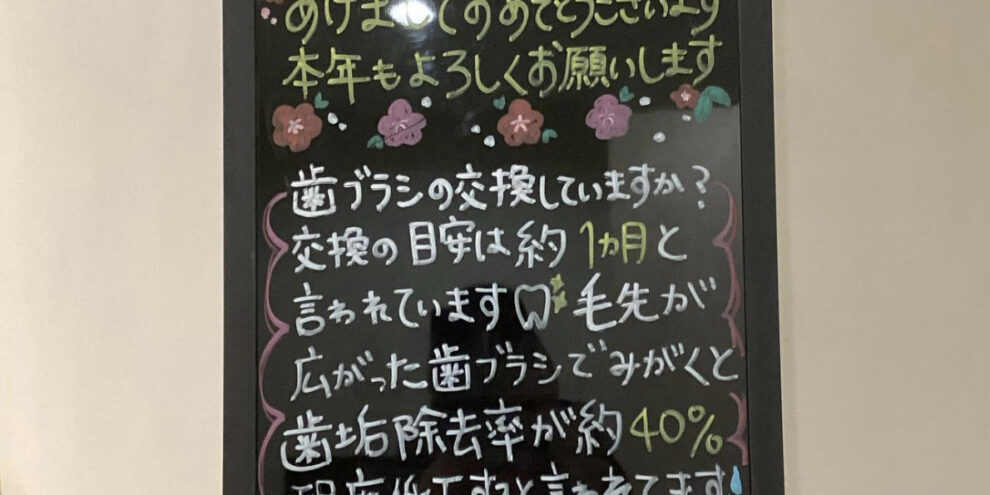 あけましておめでとうございます
本年もよろしくお願いします
歯ブラシの交換していますか?
交換の目安は約1ヵ月と
言われています 毛先が
広がった歯ブラシでみがくと
歯垢除去率が約40%
程度低下すると言われてます